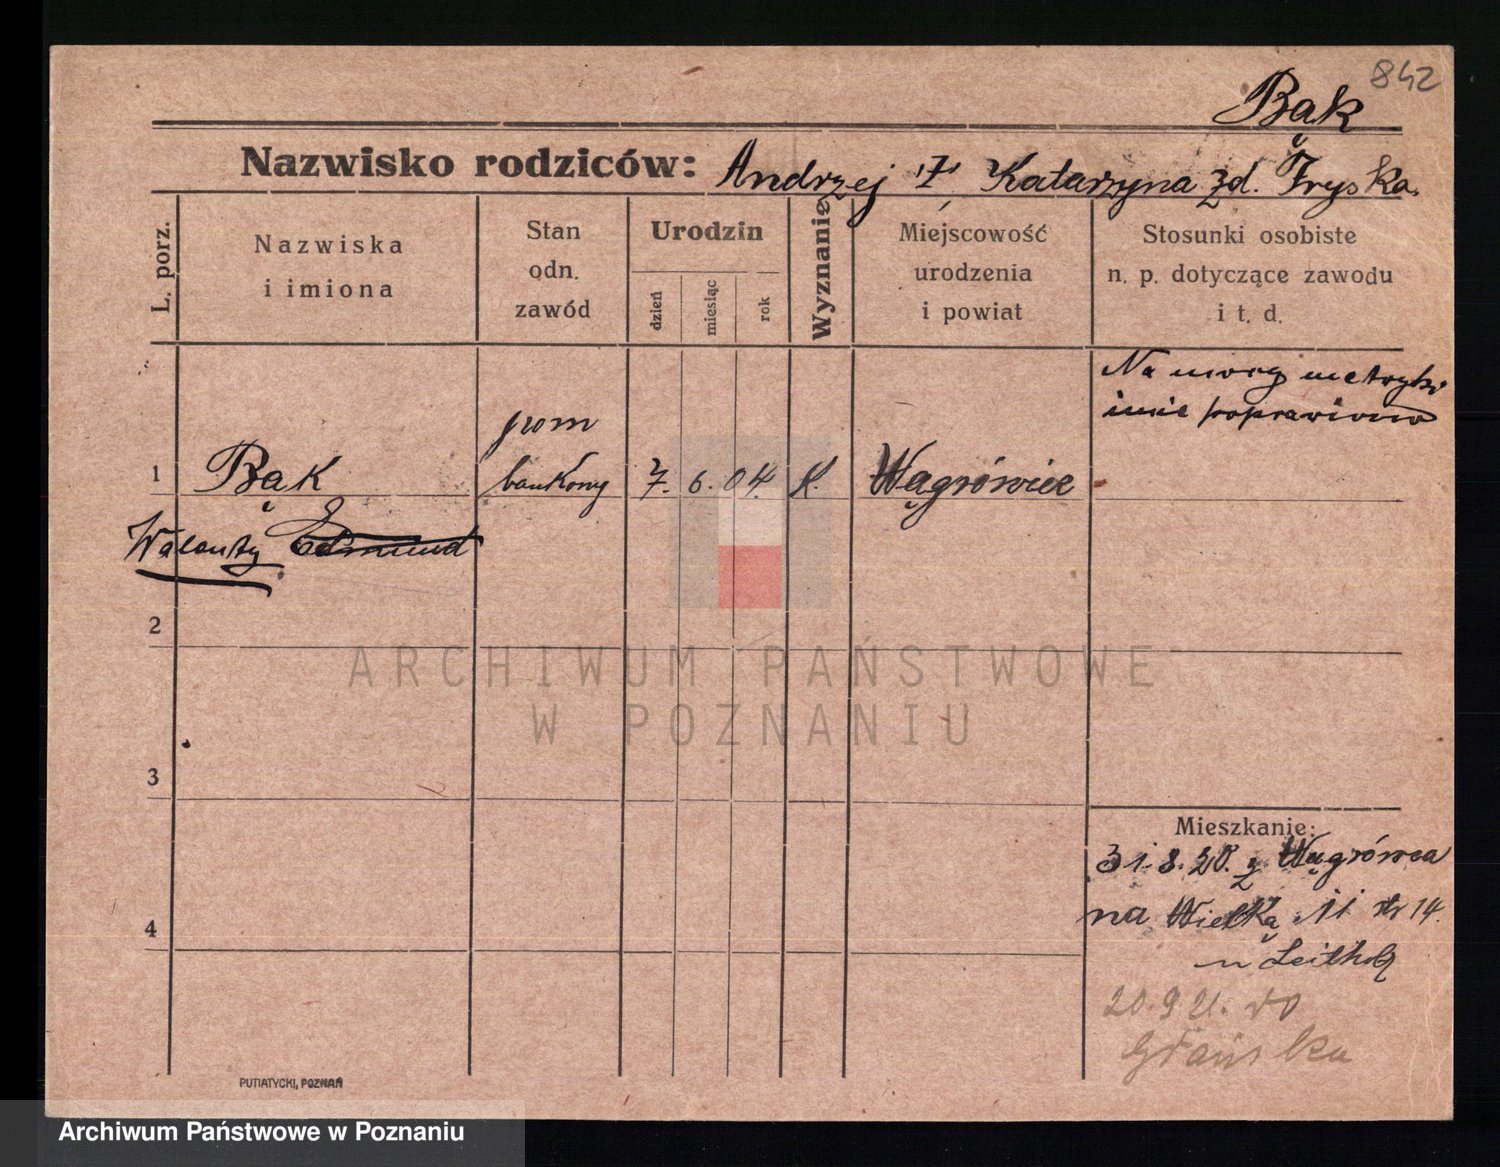 842
Bąk
Nazwisko rodziców: Andrzej i Katarzyna zd. Fryska.
L. porz.
Nazwiska
i imiona
Stan
odn.
zawód
Urodzin
dzień
miesiąc
rok
Wyznanie
Miejscowość
urodzenia
i powiat
Stosunki osobiste
n. p. dotyczące zawodu
i t. d.
Na mocy metryki
imię poprawiono
1
Bąk
bankowy
7. 6. 04. k.
Wągrówiec
Walenty Edmund
2
ARCHIWUM PAŃSTWOWE
W POZNANIU
3
4
Mieszkanie:
31.8.20. z Wągrówca
na Wielką 11 14.
u Leitholz
20.9 21. do
Gdańska
PUTIATYCKI, POZNAŃ
Archiwum Państwowe w Poznaniu